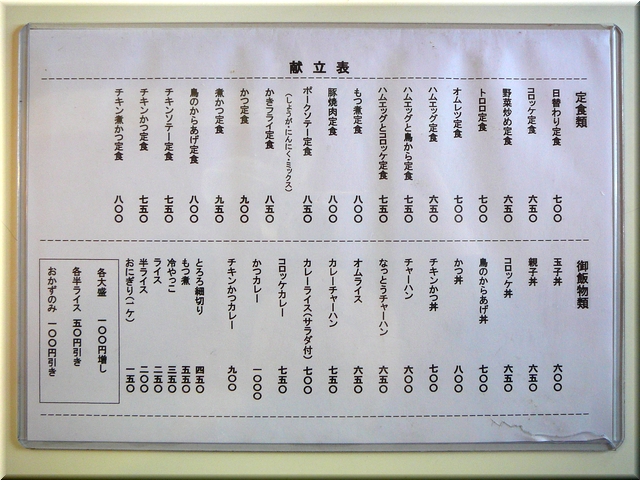 献立表
定食類
日替わり定食 七〇〇
コロッケ定食 六五〇
野菜炒め定食 六五〇
トロロ定食 七〇〇
オムレツ定食 七〇〇
ハムエッグ定食 六五〇
ハムエッグと鳥から定食 七五〇
ハムエッグとコロッケ定食 七五〇
もつ煮定食 八〇〇
豚焼肉定食 八〇〇
ポークソテー定食 八五〇
(しょうが・にんにく・ミックス)
かきフライ定食 八五〇
かつ定食 九〇〇
煮かつ定食 九五〇
鳥のからあげ定食 八〇〇
チキンソテー定食 七五〇
チキンかつ定食 七五〇
チキン煮かつ定食 八〇〇
御飯物類
玉子丼 六〇〇
親子丼 六五〇
コロッケ丼 六五〇
鳥のからあげ丼 七〇〇
かつ丼 八〇〇
チキンかつ丼 七〇〇
チャーハン 六〇〇
なっとうチャーハン 六五〇
オムライス 六五〇
カレーチャーハン 七五〇
カレーライス(サラダ付) 七〇〇
コロッケカレー 七五〇
かつカレー 一〇〇〇
チキンかつカレー 九〇〇
とろろ細切り 四五〇
もつ煮 五五〇
冷やっこ 三五〇
ライス 二五〇
半ライス 二〇〇
おにぎり(一ケ) 一五〇
各大盛 一〇〇円増し
各半ライス 五〇円引き
おかずのみ 一〇〇円引き